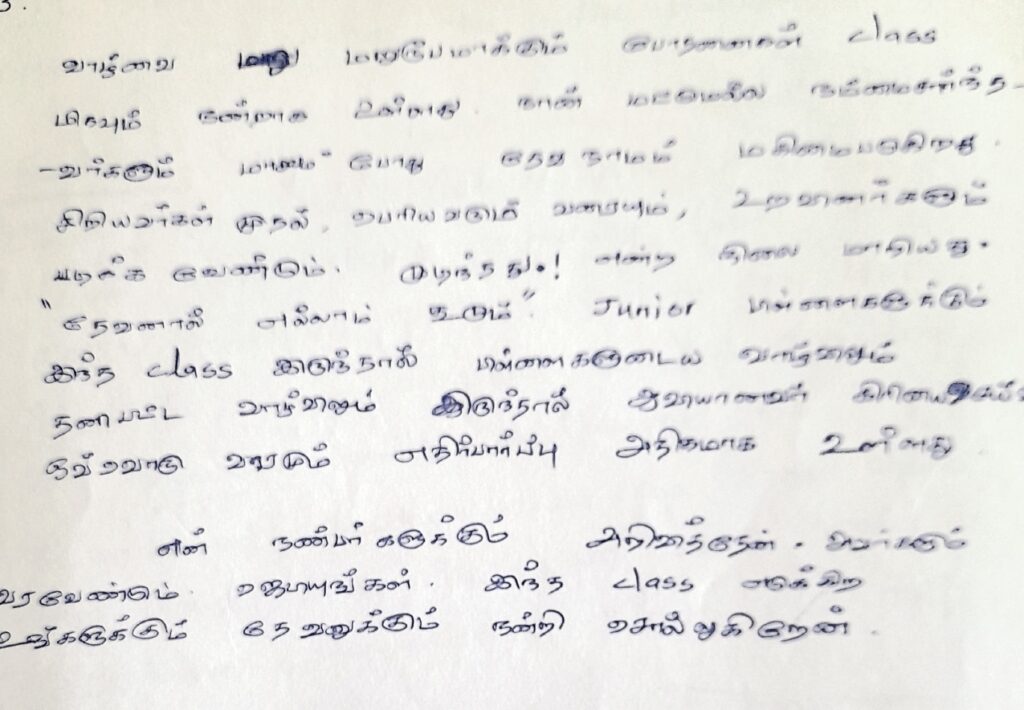 3.
வாழ்வை மறுரூபமாக்கும் போதனைகள் class
மிகவும் நன்றாக உள்ளது. நான் மட்டுமல்ல நம்மைசார்ந்த-
-வர்களும் மாறும் போது தேவ நாமம் மகிமைபடுகிறது.
சிறியவர்கள் முதல், பெரியவரும் வரையும், உறவினர்களும்
படிக்க வேண்டும். முடிந்தது.! என்ற நிலை மாறியது.
"தேவனால் எல்லாம் கூடும்" Junior பிள்ளைகளுக்கும்
இந்த class இருந்தால் பிள்ளைகளுடைய வாழ்விலும்
தனிபட்ட வாழ்விலும் இருந்தால் ஆவியானவர்
ஒவ்வொரு வாரமும் எதிர்பார்ப்பு அதிகமாக உள்ளது
என் நண்பர்களுக்கும் அறிவித்தேன். அவர்களும்
வரவேண்டும். ஜெபியுங்கள். இந்த class எடுக்கிற
உங்களுக்கும் தேவனுக்கும் நன்றி சொல்லுகிறேன்.